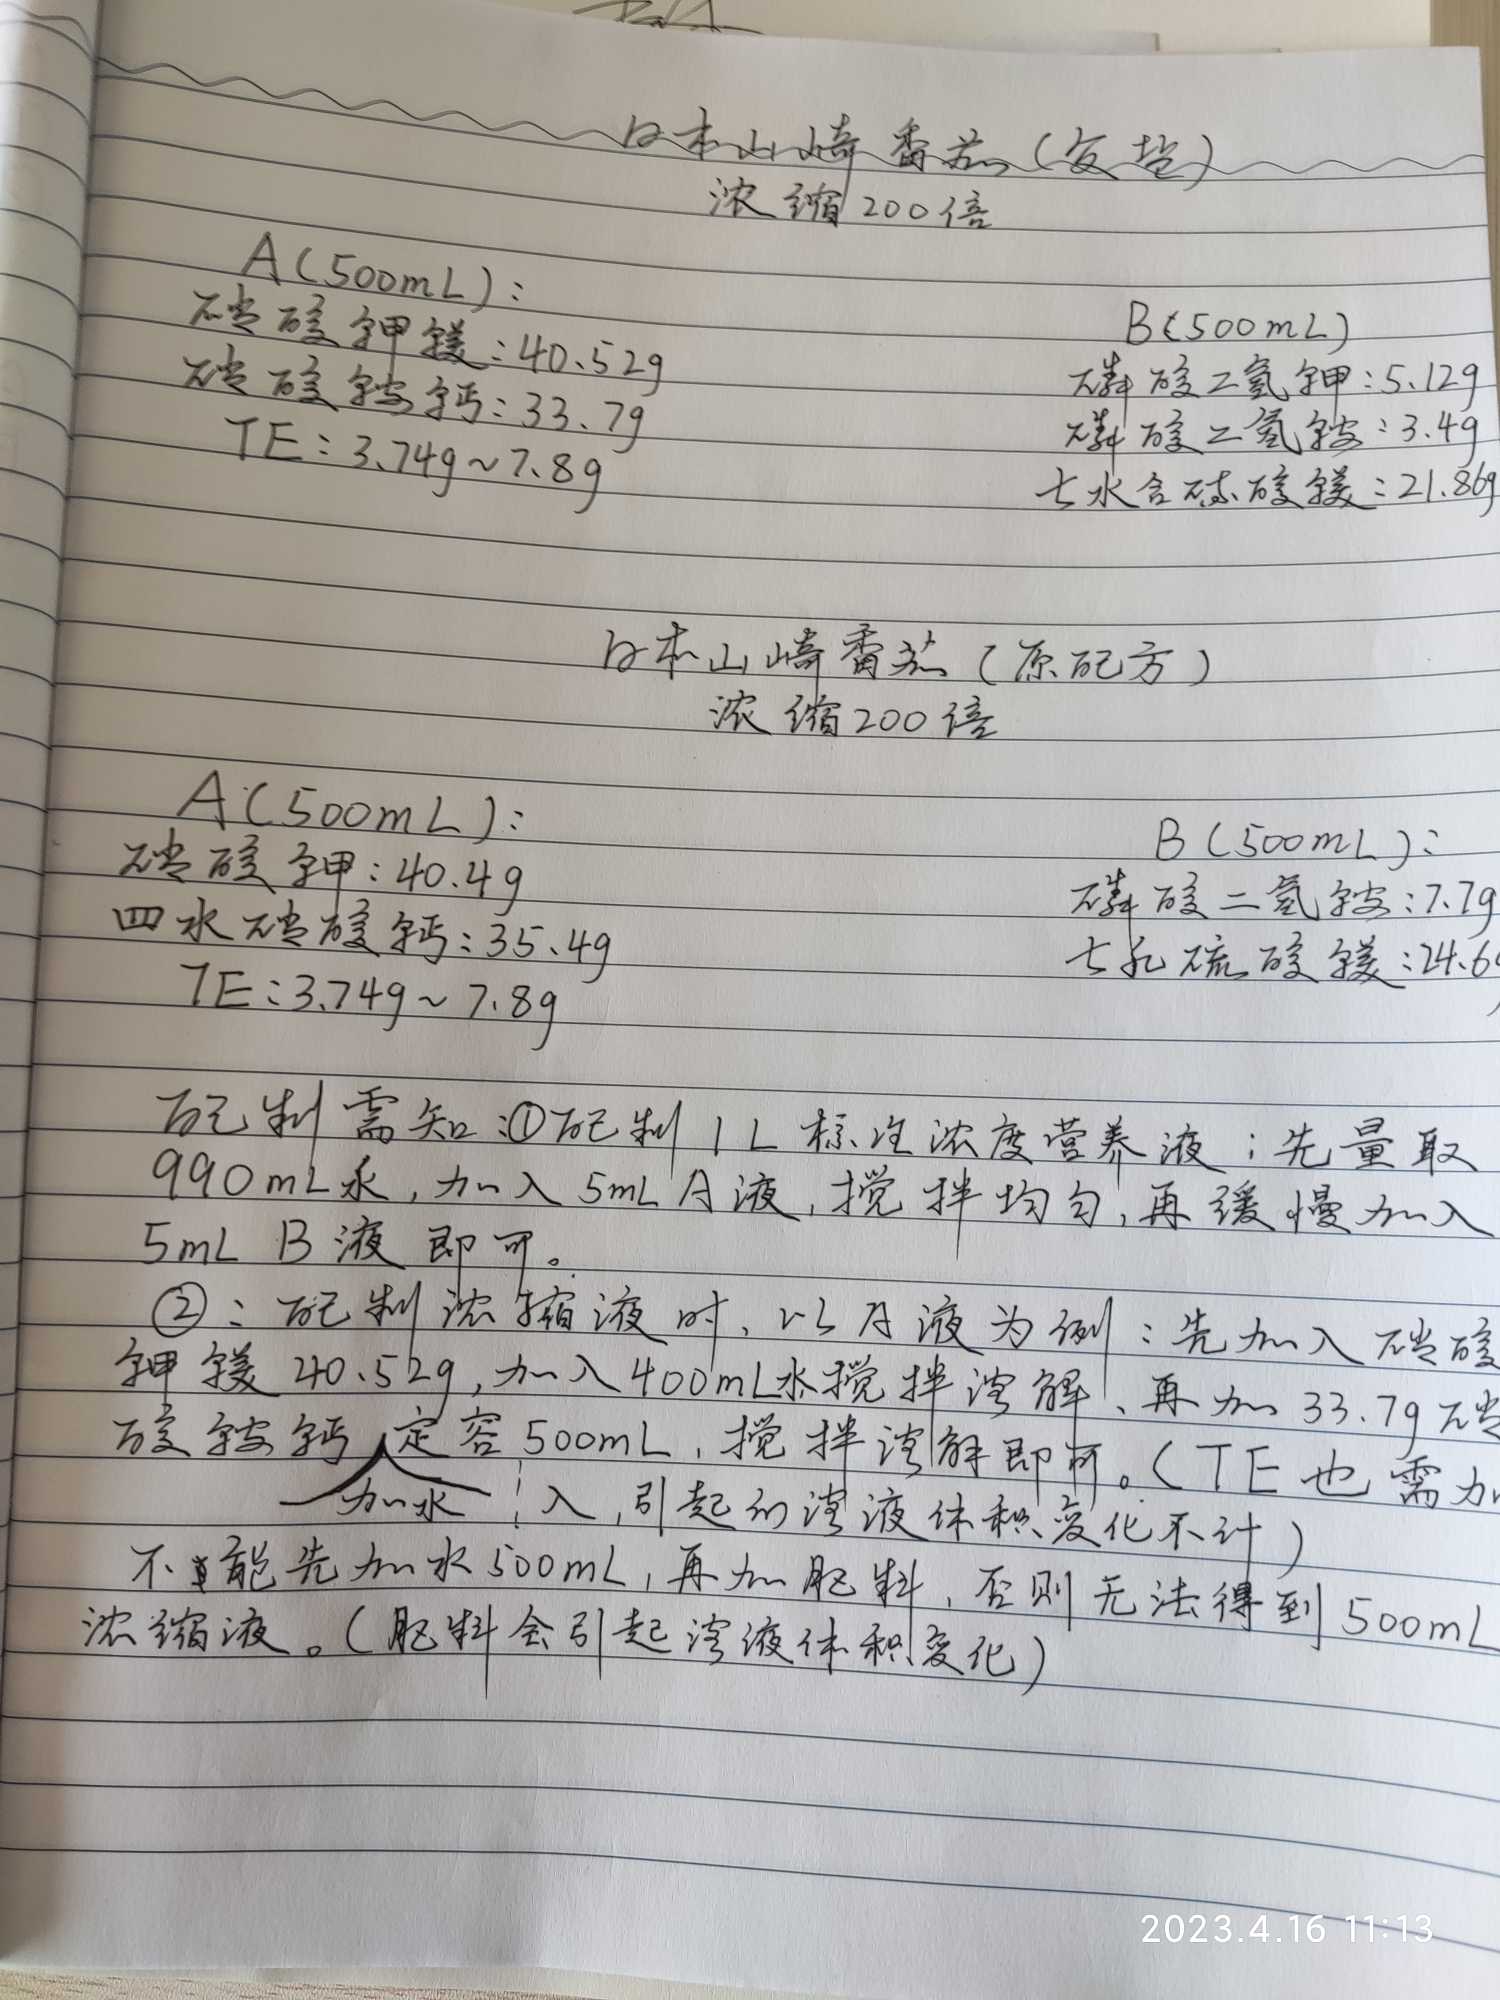 日本山崎番茄(复盐)
浓缩200倍
A(500mL):
硝酸钾镁:40.52g
硝酸铵钙:33.7g
TE:3.74g~7.8g
B(500mL)
磷酸二氢钾:5.12g
磷酸二氢铵:3.4g
七水合硫酸镁:21.86g
日本山崎番茄(原配方)
浓缩200倍
A(500mL):
硝酸钾:40.4g
四水硝酸钙:35.4g
TE:3.74g~7.8g
B(500mL):
磷酸二氢铵:7.7g
七水硫酸镁:24.6g
配制需知:①配制1L标准浓度营养液:先量取
990mL水,加入5mLA液,搅拌均匀,再缓慢加入
5mL B液即可。
②:配制浓缩液时、以A液为例:先加入硝酸
钾镁40.52g,加入400mL水搅拌溶解、再加33.7g硝
酸铵钙 定容500mL,搅拌溶解即可。(TE也需加
加水 入,引起的溶液体积变化不计)
不能先加水500mL,再加肥料,否则无法得到500mL
浓缩液。(肥料会引起溶液体积变化)
2023.4.16 11:13